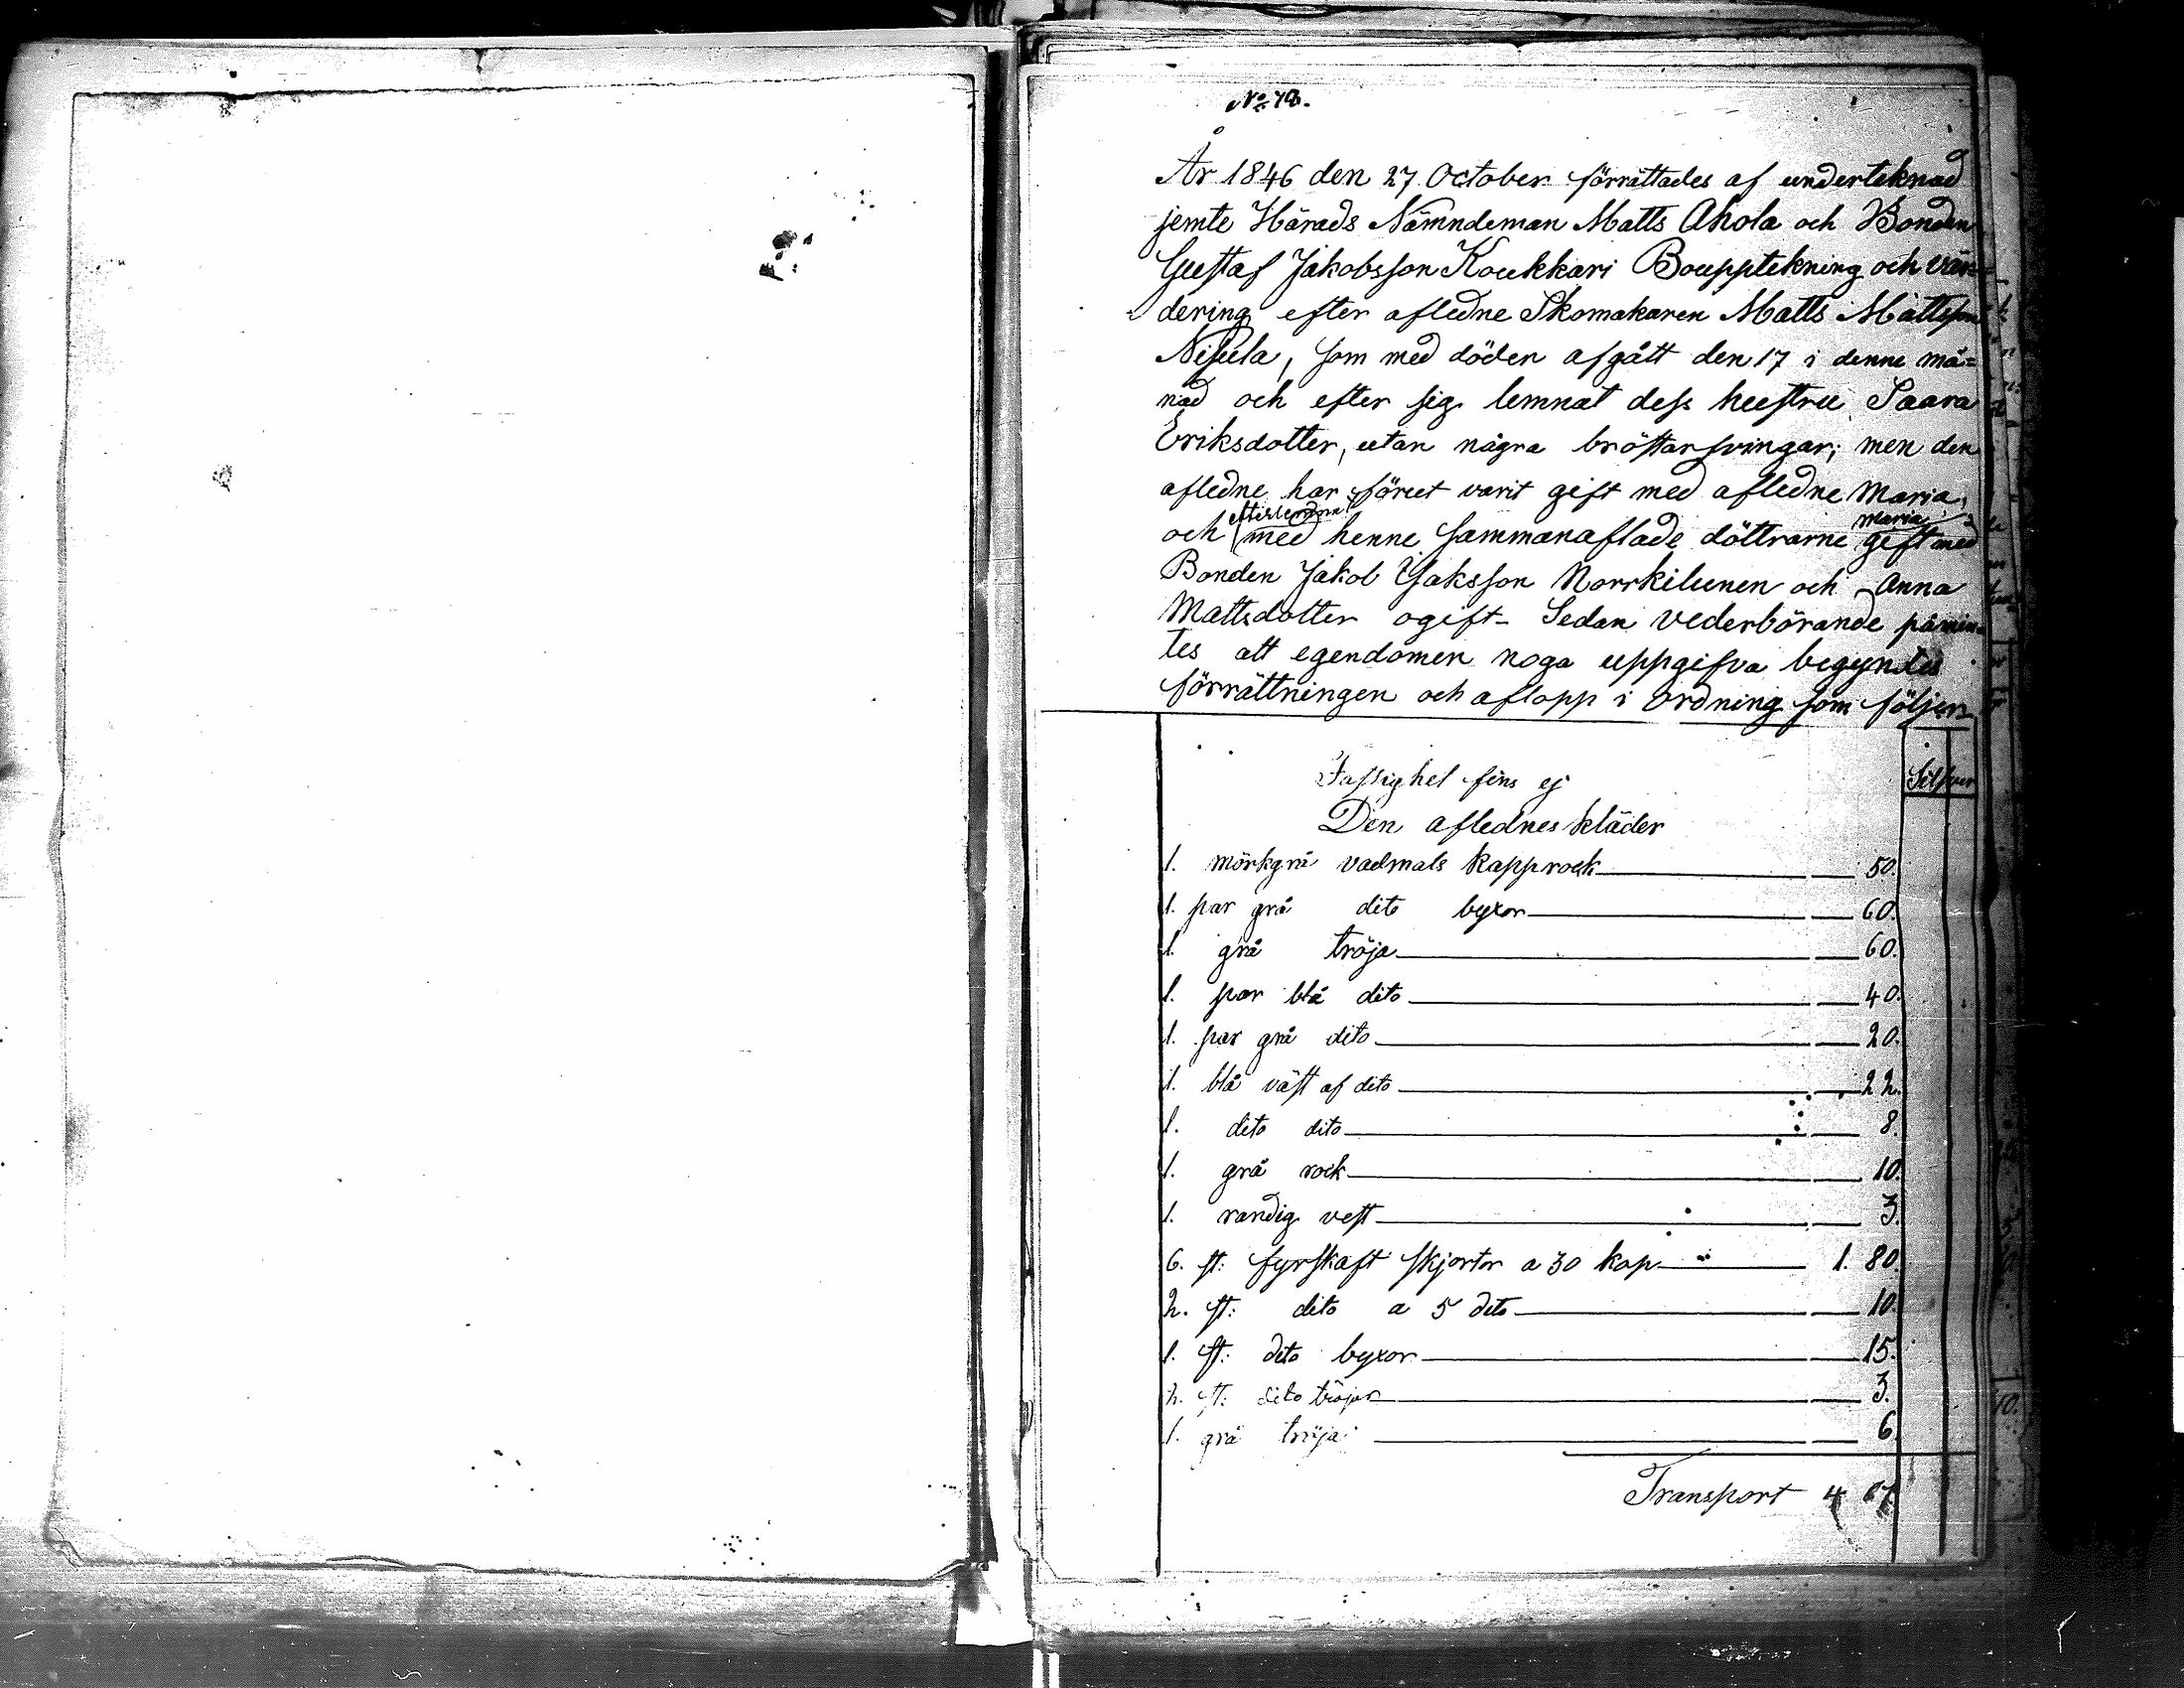 År 1846 den 27 October förrättades af underteknad
jemte Härads Nämndeman Matts Ahola och Bonden
Gustaf Jakobsson Koukkari Bouppteckning och vär=
dering efter afledne Skomakaren Matts Mattsson
Nisula, som med döden afgått den 17 i denne må=
nad och efter sig lemnat dess hustru Saara
Eriksdotter, utan några bröstarfvingar; men den
afledne har förut varit gift med afledne Maria,
och efterlemnat med henne sammanaflade döttrarne Maria gift med
Bonden Jakob Isaksson Norrkilunen och Anna
Mattsdotter ogift. Sedan vederbörande påmin=
tes att egendomen noga uppgifva begyntes
förrättningen och aflopp i ordning som följer
Fastighet fins ej
Silfver
Den aflednes kläder
1. mörkgrå vadmals kapprock 50.
1. par grå dito byxor 60.
1. grå tröja 60.
1. par blå dito 40.
1. par grå dito 20.
1. blå väst af dito 22.
1. dito dito 8.
1. grå rock 10.
1. randig vest 3.
6. st: fyrskaft skjortor a 30 kop 1. 80.
2. st: dito a 5 dito 10.
1. st: dito byxor 15.
2. st: dito tröjor 3.
1. grå tröja 6.
Transport 4